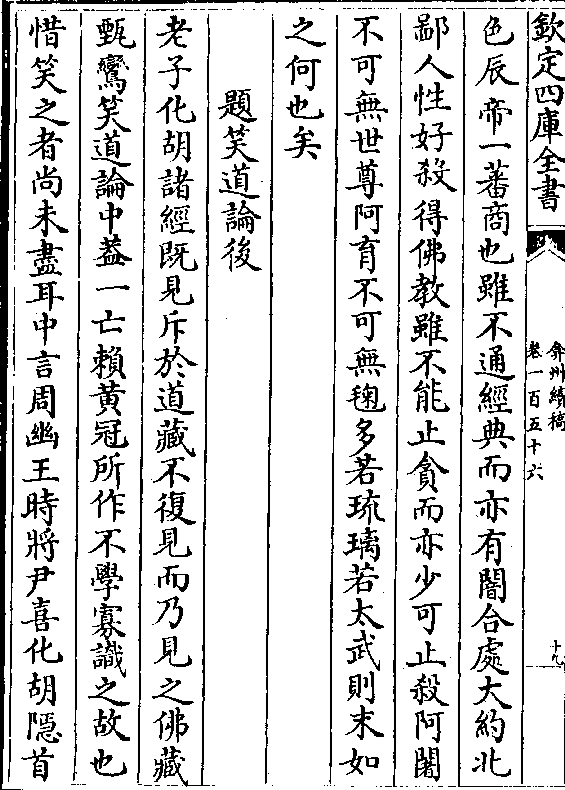 欽定四庫全書
弇州續稿
卷一百五十六
十九
色辰帝一蕃商也雖不通經典而亦有闇合處大約北
鄙人性好殺得佛教雖不能止貪而亦少可止殺阿闍
不可無世尊阿育不可無毱多若琉璃若太武則末如
之何也矣
題笑道論後
老子化胡諸經既見斥於道藏不復見而乃見之佛藏
甄鸞笑道論中葢一亡賴黃冠所作不學寡識之故也
惜笑之者尚未盡耳中言周幽王時將尹喜化胡隱首